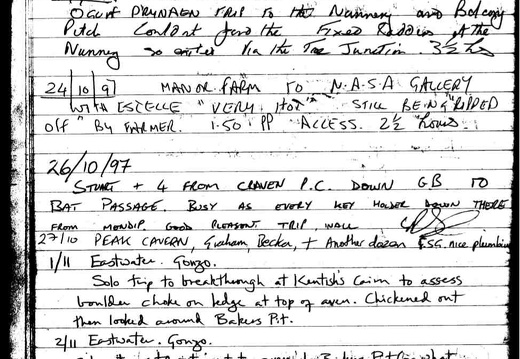 Ogof Draenen trip to the Nunnery and Balcony
Pitch Couldnt find the Fixed Ladders at the
Nunnery so exited via the Tree Junction. 3½ hrs
24/10/97 MANOR FARM TO N.A.S.A GALLERY
WITH ESTELLE "VERY HOT" STILL BEING "RIPPED
OFF" BY FARMER. 1.50 PP ACCESS. 2½ hours.
26/10/97
STUART + 4 FROM CRAVEN P.C. DOWN GB TO
BAT PASSAGE. BUSY AS EVERY KEY HOLDER DOWN THERE
FROM MENDIP. GOOD PLEASANT TRIP,
27/10 PEAK CAVERN, Graham, Becka, + Another dozen nice plumbing
1/11 Eastwater. Gonzo.
Solo trip to breakthrough at Kentish's Cairn to assess
boulder choke on ledge at top of aven. Chickened out
then looked around Bakers Pit.
2/11 Eastwater. Gonzo.